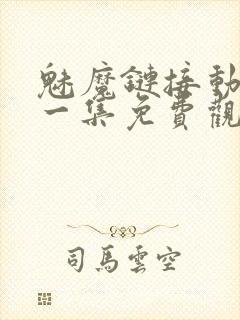 魅魔鏈接動
一集免費觀
司馬雲空